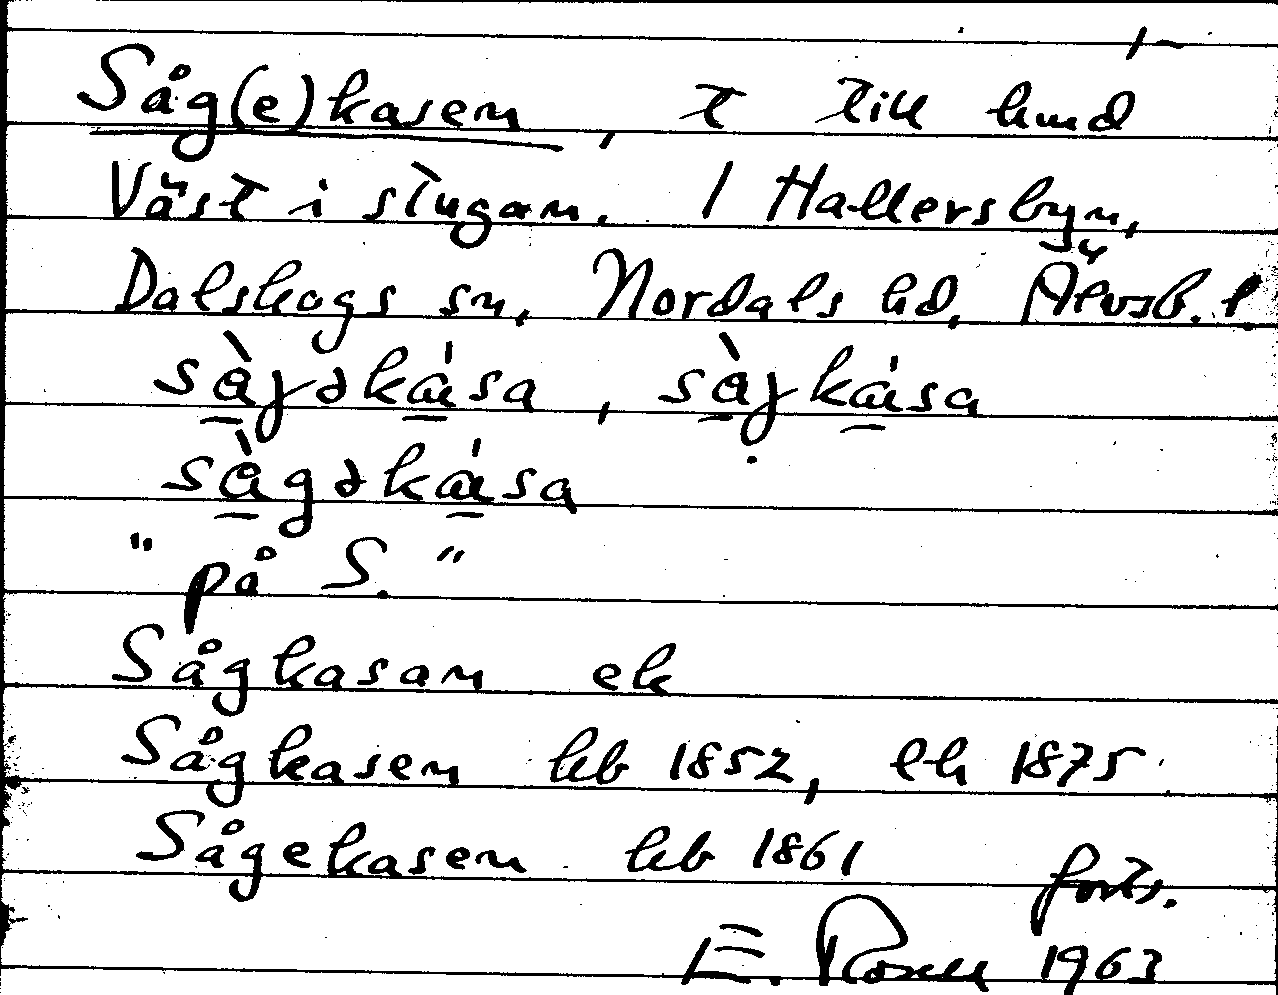 1~
Såg(e)kasen, t till hmd
Väst i stugan. 1 Hallersbyn,
Dalskogs sn, Nordals hd, Älvsb. l.
sàjəkáisa, sàjkáisa
sàgəkáisa
"på S."
Sågkasan ek
Sågkasen hb 1852, lh 1875
Sågekasen hb 1861
forts.
E. Rosell 1963